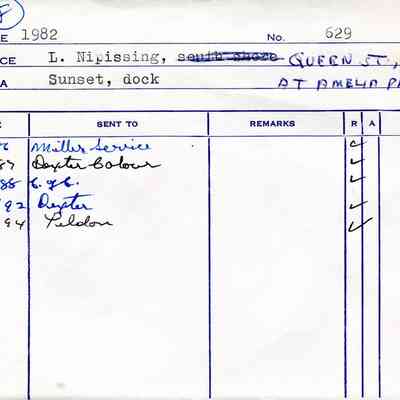 E 1982 No. 629
CE L. Nipissing, south shore QUEEN ST.,
A Sunset, dock AT AMELIA PA
E SENT TO REMARKS R A
6 Miller Service ✓
87 Dexter Colour ✓
88 ✓
92 Dexter ✓
94 Peldon ✓